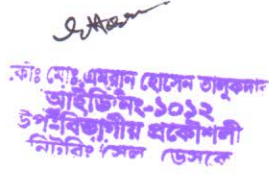 মোঃ এমরান হোসেন তালুকদার
আইডি নং-১০১২
উপ-বিভাগীয় প্রকৌশলী
সেল ডেসকো